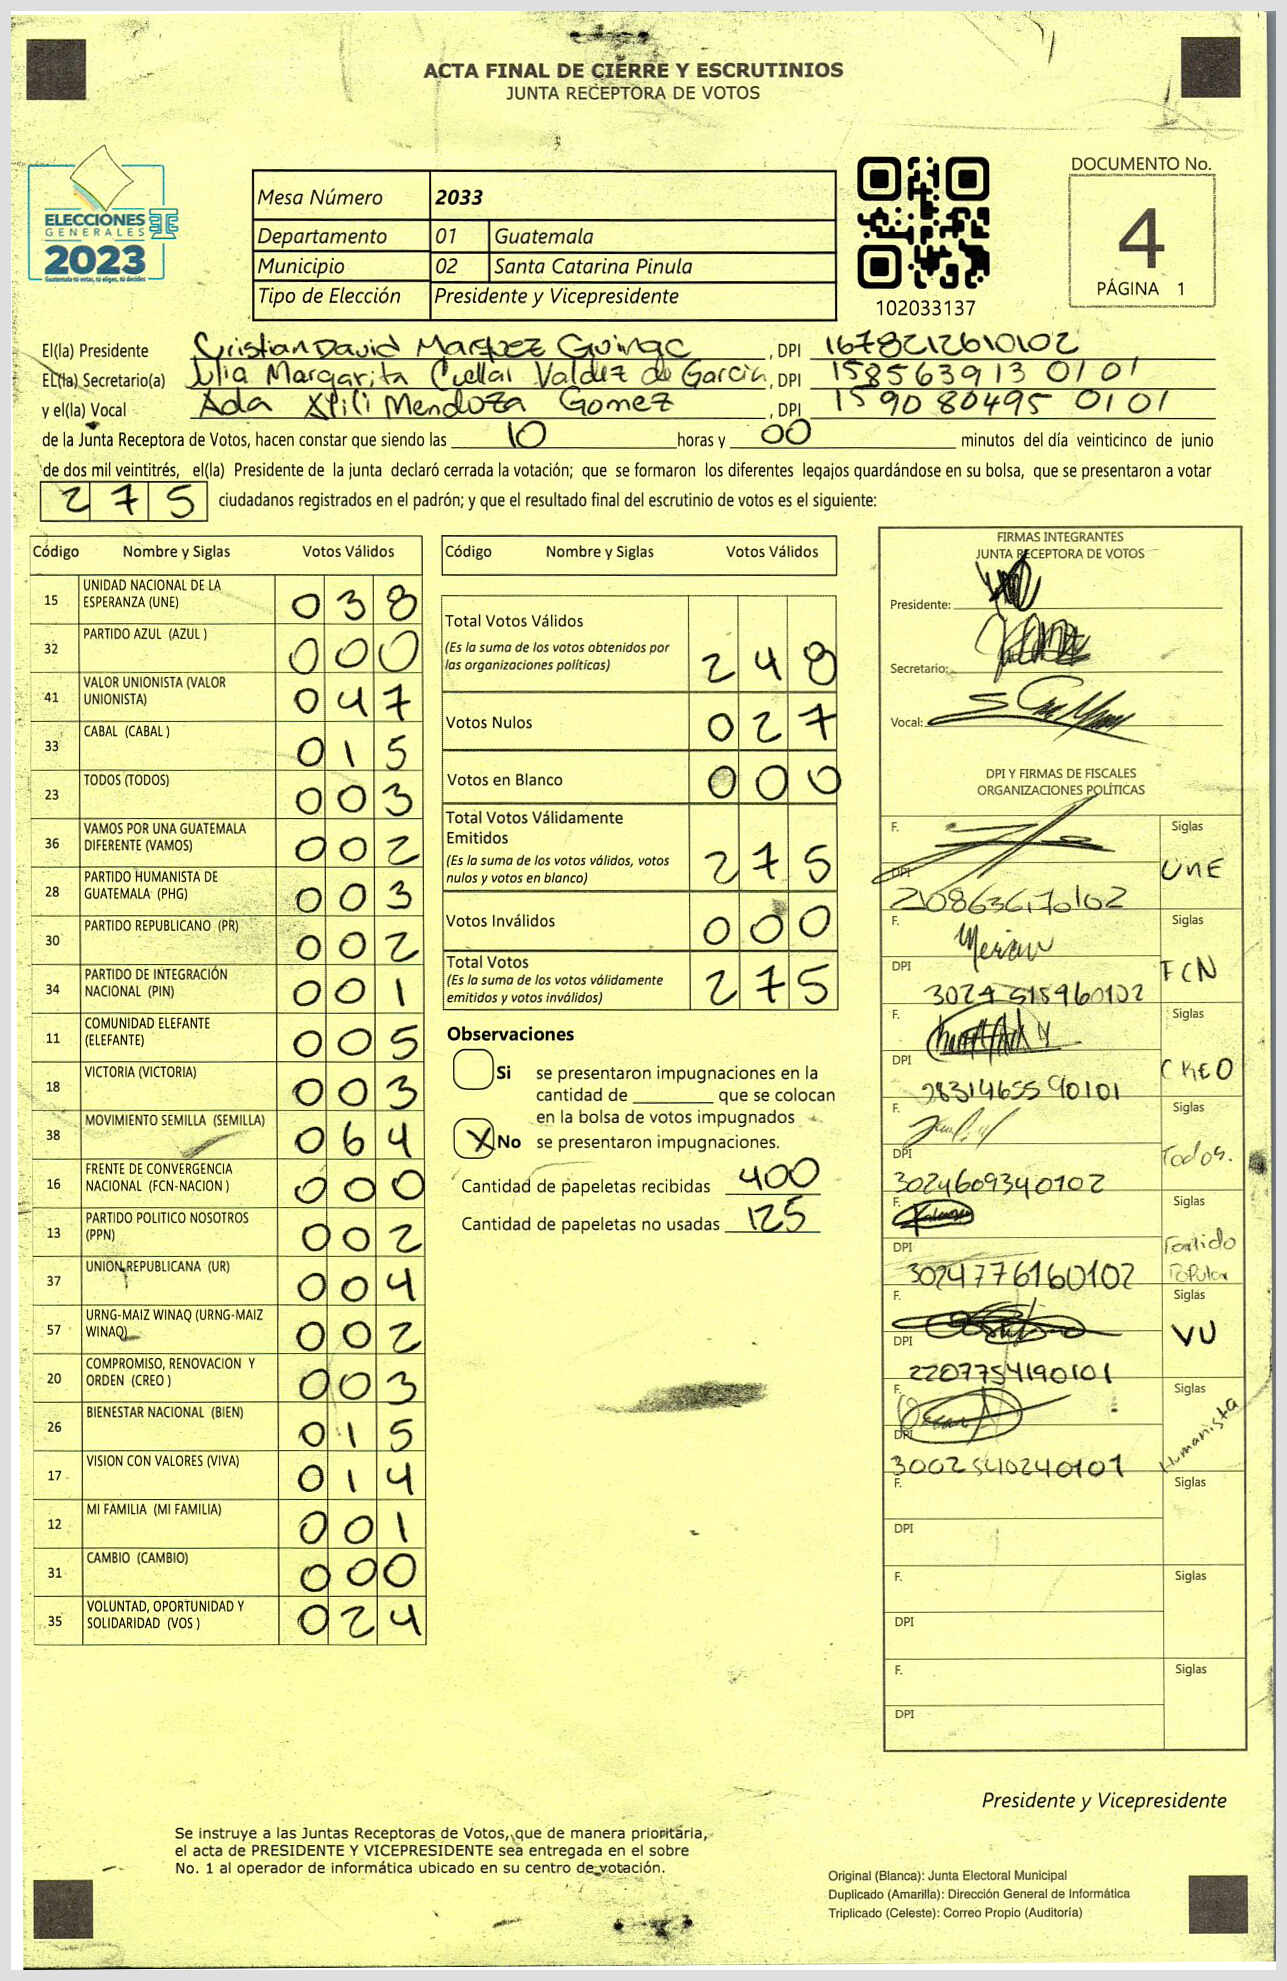 ACTA FINAL DE CIERRE Y ESCRUTINIOS
JUNTA RECEPTORA DE VOTOS
ELECCIONES
GENERALES
2023
Guatemala tú votas, tú eliges, tú decides
Mesa Número 2033
Departamento 01 Guatemala
Municipio 02 Santa Catarina Pinula
Tipo de Elección Presidente y Vicepresidente
102033137
DOCUMENTO No.
4
PÁGINA 1
El(la) Presidente Cristian David Marquez , DPI 1678212610102
EL(la) Secretario(a) Julia Margarita Cuellar Valdez de Garcia, DPI 158563913 0101
y el(la) Vocal Ada Mendoza Gomez , DPI 159080495 0101
de la Junta Receptora de Votos, hacen constar que siendo las 10 horas y 00 minutos del día veinticinco de junio
de dos mil veintitrés, el(la) Presidente de la junta declaró cerrada la votación; que se formaron los diferentes legajos guardándose en su bolsa, que se presentaron a votar
275 ciudadanos registrados en el padrón; y que el resultado final del escrutinio de votos es el siguiente:
Código Nombre y Siglas Votos Válidos
15 UNIDAD NACIONAL DE LA ESPERANZA (UNE) 038
32 PARTIDO AZUL (AZUL ) 000
41 VALOR UNIONISTA (VALOR UNIONISTA) 047
33 CABAL (CABAL ) 015
23 TODOS (TODOS) 003
36 VAMOS POR UNA GUATEMALA DIFERENTE (VAMOS) 002
28 PARTIDO HUMANISTA DE GUATEMALA (PHG) 003
30 PARTIDO REPUBLICANO (PR) 002
34 PARTIDO DE INTEGRACIÓN NACIONAL (PIN) 001
11 COMUNIDAD ELEFANTE (ELEFANTE) 005
18 VICTORIA (VICTORIA) 003
38 MOVIMIENTO SEMILLA (SEMILLA) 064
16 FRENTE DE CONVERGENCIA NACIONAL (FCN-NACION ) 000
13 PARTIDO POLITICO NOSOTROS (PPN) 002
37 UNION REPUBLICANA (UR) 004
57 URNG-MAIZ WINAQ (URNG-MAIZ WINAQ) 002
20 COMPROMISO, RENOVACION Y ORDEN (CREO ) 003
26 BIENESTAR NACIONAL (BIEN) 015
17 VISION CON VALORES (VIVA) 014
12 MI FAMILIA (MI FAMILIA) 001
31 CAMBIO (CAMBIO) 000
35 VOLUNTAD, OPORTUNIDAD Y SOLIDARIDAD (VOS ) 024
Código Nombre y Siglas Votos Válidos
Total Votos Válidos 248
(Es la suma de los votos obtenidos por
las organizaciones políticas)
Votos Nulos 027
Votos en Blanco 000
Total Votos Válidamente
Emitidos 275
(Es la suma de los votos válidos, votos
nulos y votos en blanco)
Votos Inválidos 000
Total Votos 275
(Es la suma de los votos válidamente
emitidos y votos inválidos)
Observaciones
Si se presentaron impugnaciones en la
cantidad de ________ que se colocan
en la bolsa de votos impugnados
X No se presentaron impugnaciones.
Cantidad de papeletas recibidas 400
Cantidad de papeletas no usadas 125
FIRMAS INTEGRANTES
JUNTA RECEPTORA DE VOTOS
Presidente:
Secretario:
Vocal:
DPI Y FIRMAS DE FISCALES
ORGANIZACIONES POLÍTICAS
F. Siglas
DPI 2108636170102 UNE
F. Siglas
DPI 3024515960102 FCN
F. Siglas
DPI 2831465590101 CREO
F. Siglas
DPI 3024609340102 Todos.
F. Siglas
DPI 3024776160102 Partido Popular
F. Siglas
DPI 2207754190101 VU
F. Siglas
DPI 3002540240101 Humanista
F. Siglas
DPI
F. Siglas
DPI
F. Siglas
DPI
Presidente y Vicepresidente
Se instruye a las Juntas Receptoras de Votos, que de manera prioritaria,
el acta de PRESIDENTE Y VICEPRESIDENTE sea entregada en el sobre
No. 1 al operador de informática ubicado en su centro de votación.
Original (Blanca): Junta Electoral Municipal
Duplicado (Amarilla): Dirección General de Informática
Triplicado (Celeste): Correo Propio (Auditoría)